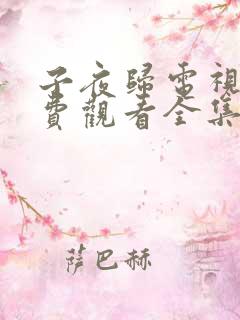 子夜歸電視
費觀看全集
薩巴赫